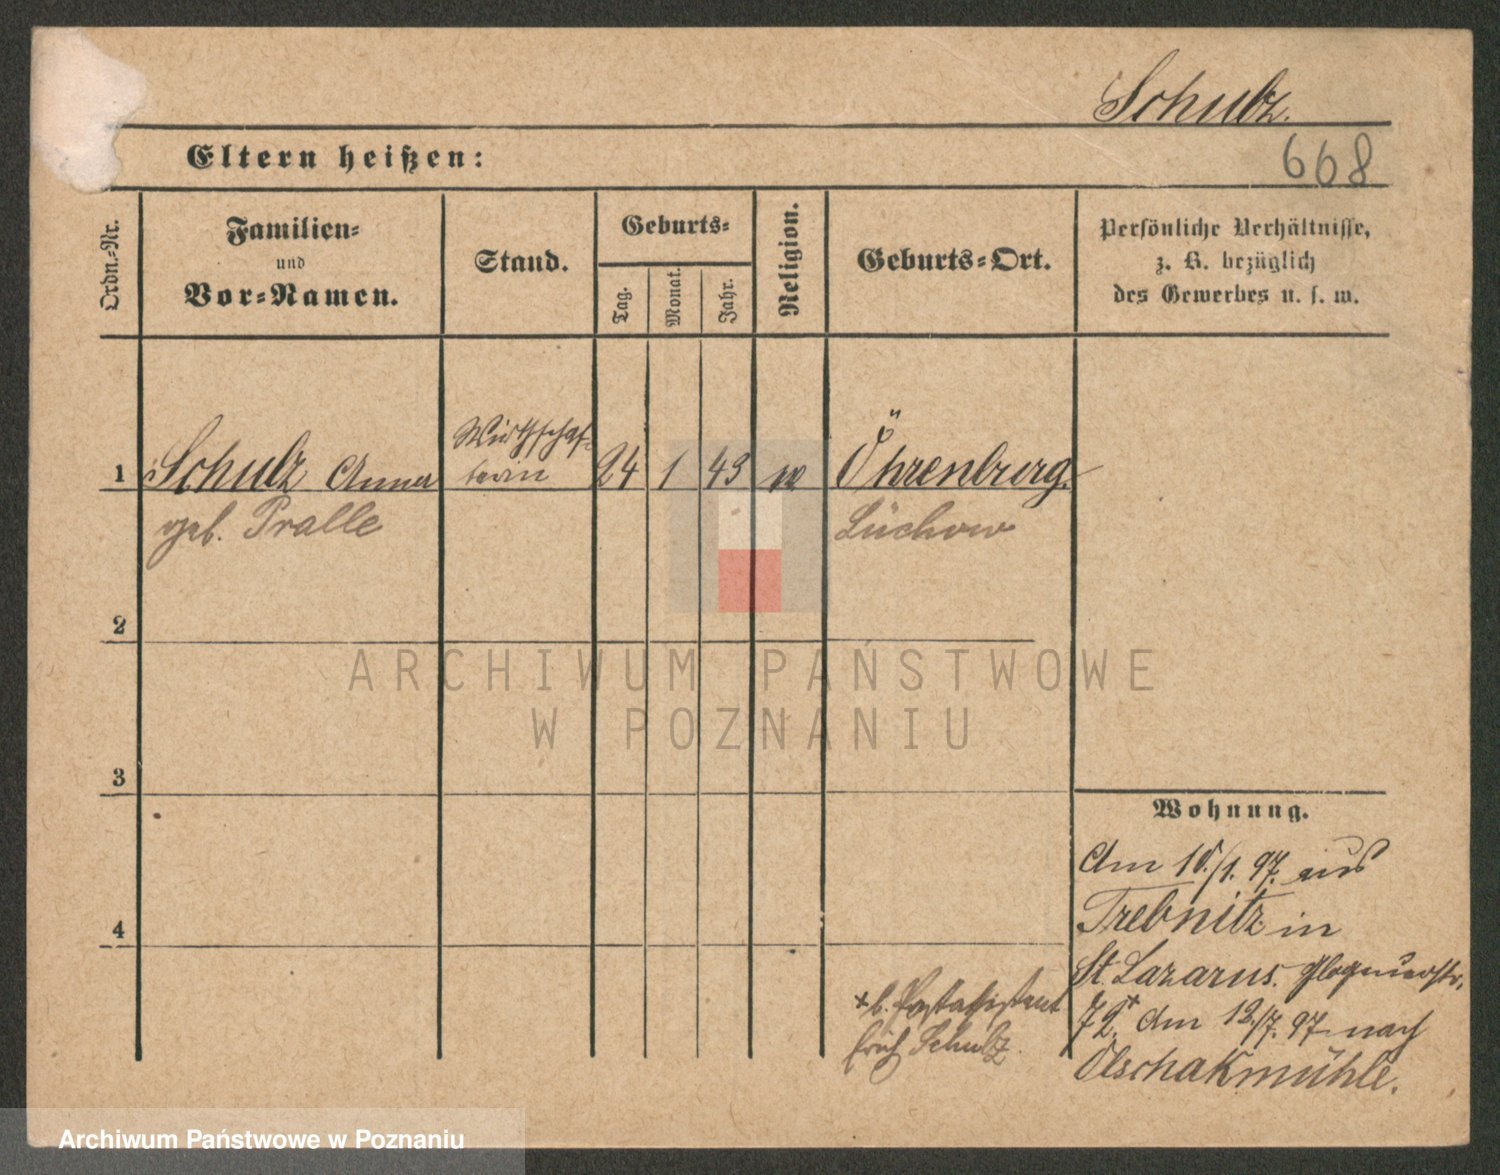 Schulz.
Eltern heißen:
668
Ordn.-Nr.
Familien-
und
Vor-Namen.
Stand.
Geburts-
Tag.
Monat.
Jahr.
Religion.
Geburts-Ort.
Persönliche Verhältnisse,
z. B. bezüglich
des Gewerbes u. s. w.
1 Schulz Anna Wirthschaf- 24 1 43 Öhrenburg
terin
geb. Pralle Lüchow
2
ARCHIWUM PAŃSTWOWE
W POZNANIU
3
4
Wohnung.
Am 10/1. 97. aus
Trebnitz in
St. Lazarus. Glogauerstr.
72+ Am 12/7. 97 nach
Olschakmühle.
+b. Postassistent
Erich Schulz.
Archiwum Państwowe w Poznaniu